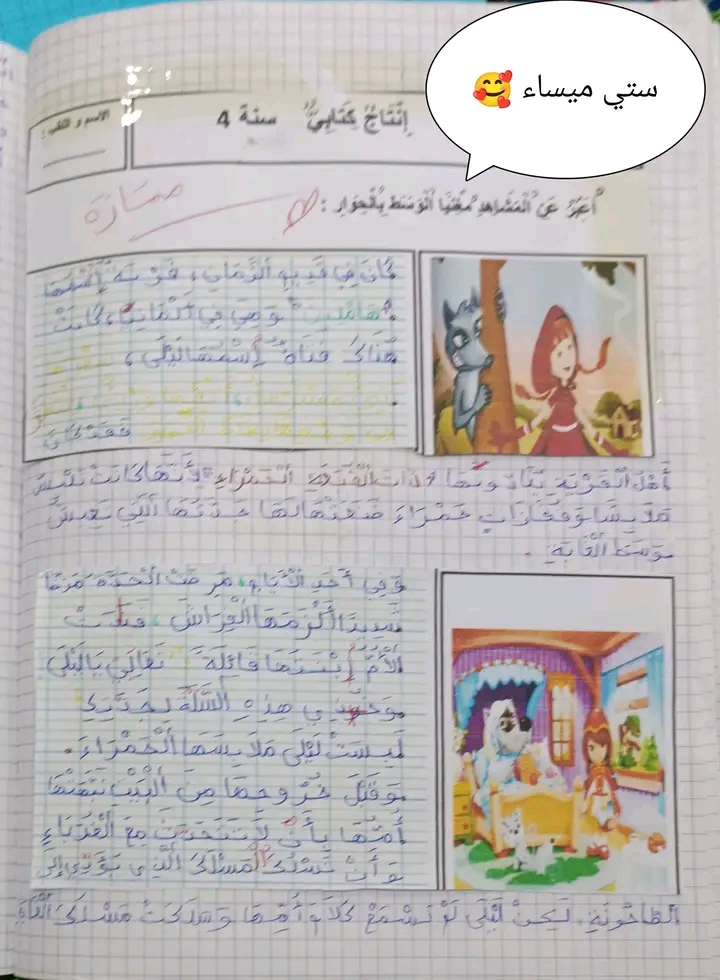 ستي ميساء 🥰
الاسم و اللقب :
إِنْتَاجٌ كِتَابِيٌّ سنة 4
أُعَبِّرُ عَنْ الْمَشَاهِدِ مُغْنِيًا الْوَسَطَ بِالْحِوَارِ :
كَانَ فِي قَدِيمِ الزَّمَانِ، قَرْيَة اسْمُهَا
وَهِيَ فِي أَلْمَانِيَا، كَانَتْ
هُنَاكَ فَتَاةٌ إِسْمُهَا لَيْلَى،
فَقَدْ كَانَ
أَهْلُ الْقَرْيَةِ يُنَادُونَهَا ذَاتَ الْقُبَّعَةِ الْحَمْرَاءِ لأَنَّهَا كَانَتْ تَلْبَسُ
مَلَابِسًا وَقُفَّازَاتٍ حَمْرَاءَ صَنَعَتْهَا لَهَا جَدَّتُهَا الَّتِي تَعِيشُ
وَسَطَ الْغَابَةِ .
وَفِي أَحَدِ الْأَيَّامِ، مَرِضَتْ الْجَدَّةُ مَرَضًا
شَدِيدًا أَلْزَمَهَا الْفِرَاشَ، فَنَادَتْ
الأُمُّ إِبْنَتَهَا قَائِلَةً " تَعَالَيْ يَا لَيْلَى
وَخُذِي هَذِهِ السَّلَّةَ لِجَدَّتِكِ
لَبِسَتْ لَيْلَى مَلَابِسَهَا الْحَمْرَاءَ .
وَقَبْلَ خُرُوجِهَا مِنَ الْبَيْتِ نَبَّهَتْهَا
أُمُّهَا بِأَنْ لَا تَتَحَدَّثَ مَعَ الْغُرَبَاءِ
وَأَنْ تَسْلُكَ الْمَسْلَكَ الَّذِي يُؤَدِّي إِلَى
الطَّاحُونَةِ. لَكِنْ لَيْلَى لَمْ تَسْمَعْ كَلَامَ أُمِّهَا وَسَلَكَتْ مَسْلَكَ